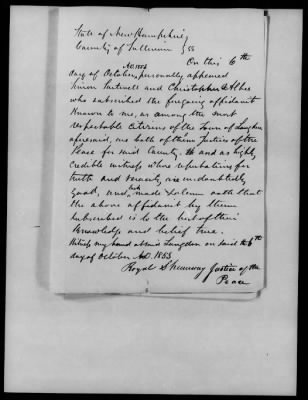 State of New Hampshire,
County of Sullivan } ss
On this 6th
A.D. 1853
day of October, personally appeared
and Christopher
who subscribed the foregoing affidavit
Known to me, as among the most
respectable citizens of the Town of Langdon
aforesaid, and both of them Justices of the
Peace for said County. and as highly
credible witness whose reputations for
truth and veracity are undoubtedly
good, and made solemn oath that
the above affidavit by them
subscribed is to the best of their
Knowledge and belief true.
Witness my hand at said Langdon on said 6th
day of October A.D. 1853
Royal Shumway Justice of the
Peace